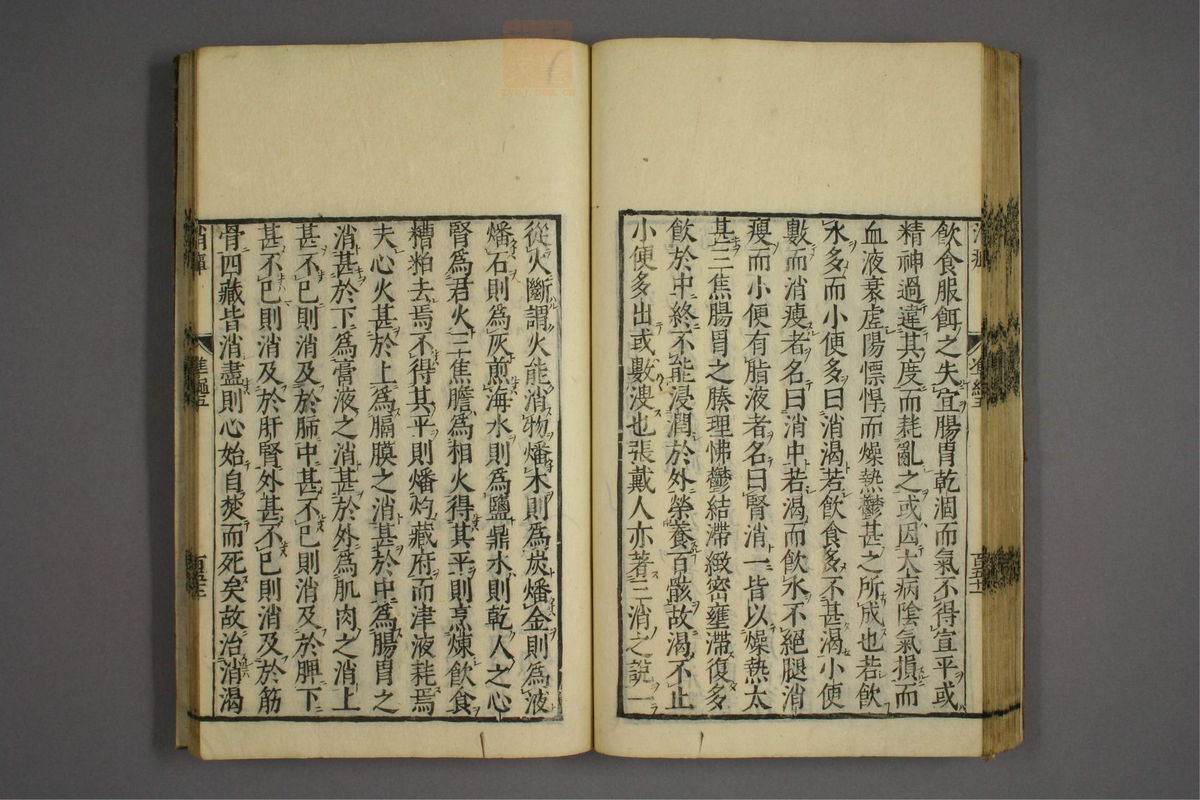 飲食服餌之失宜腸胃乾涸而氣不得宣平或
精神過違其度而耗亂之或因大病陰氣損而
血液衰虛陽慓悍而燥熱鬱甚之所成也若飲
水多而小便多曰消渴若飲食多不甚渴小便
數而消瘦者名曰消中若渴而飲水不絕腿消
瘦而小便有脂液者名曰腎消一皆以燥熱太
甚三焦腸胃之腠理怫鬱結滯緻密壅滯復多
飲於中終不能浸潤於外榮養百骸故渴不止
小便多出或數溲也張戴人亦著三消之說一
從火斷謂火能消物燔木則為炭燔金則為液
燔石則為灰煎海水則為鹽鼎水則乾人之心
腎為君火三焦膽為相火得其平則烹煉飲食
糟粕去焉不得其平則燔灼藏府而津液耗焉
夫心火甚於上為膈膜之消甚於中為腸胃之
消甚於下為膏液之消甚於外為肌肉之消上
甚不已則消及於肺中甚不已則消及於脾下
甚不已則消及於肝腎外甚不已則消及於筋
骨四藏皆消盡則心始自焚而死矣故治消渴